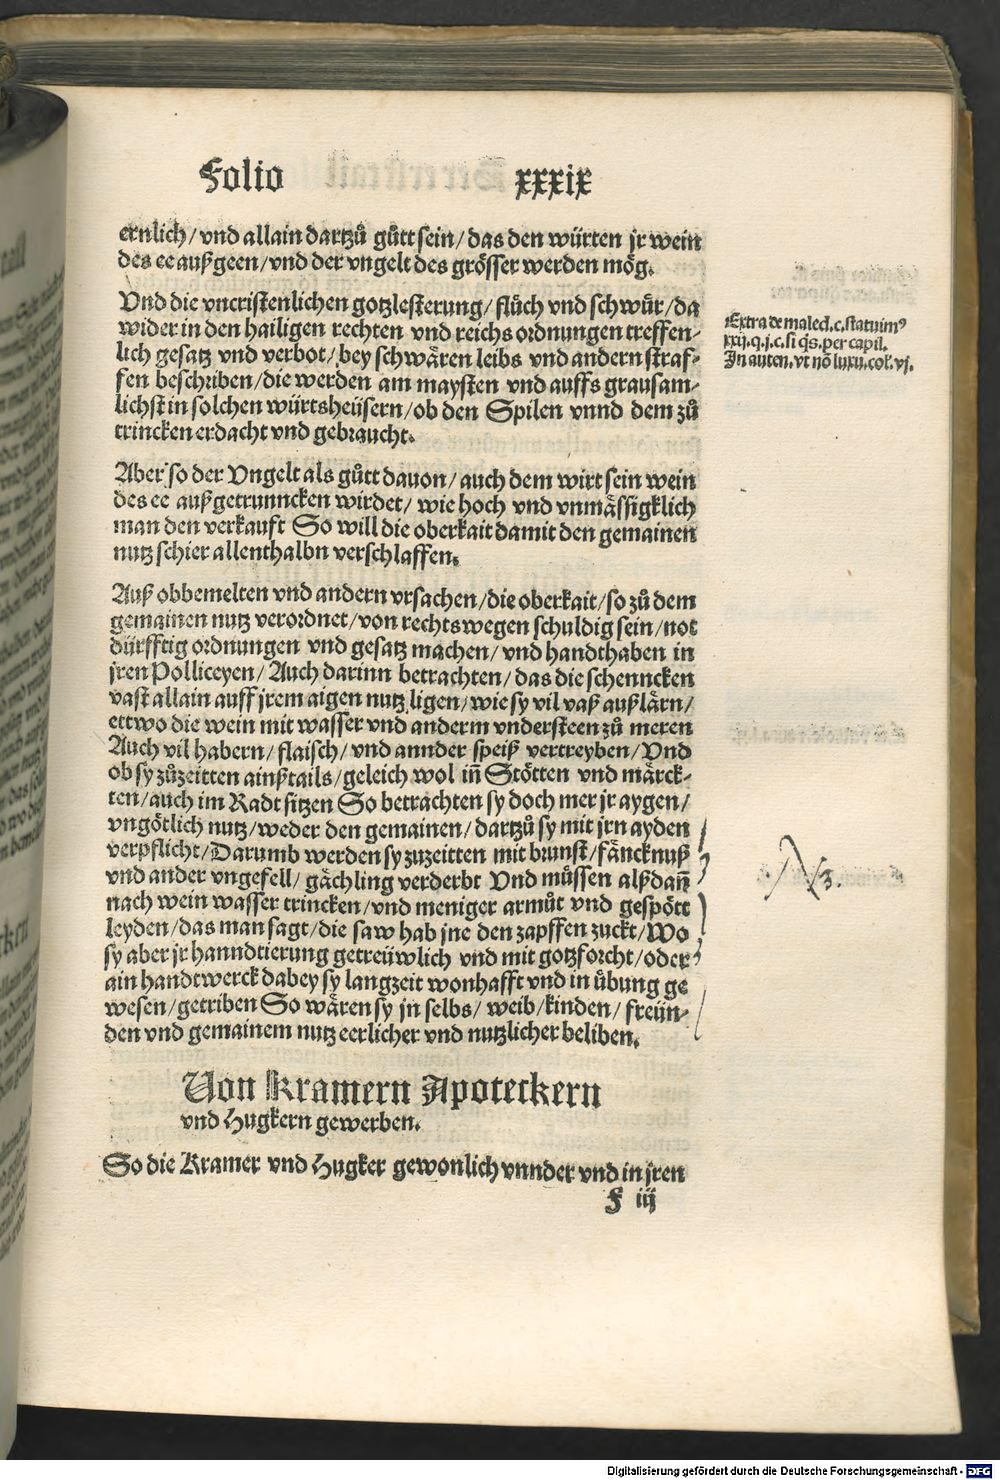 Folio xxxix
ernlich/vnd allain dartzů gůtt sein/das den würten jr wein
des ee außgeen/vnd der vngelt des grösser werden mög.
Vnd die vncristenlichen gotzlesterung/flůch vnd schwůr/da
wider in den hailigen rechten vnd reichs ordnungen treffen-
lich gesatz vnd verbot/bey schwären leibs vnd andern straf-
fen beschriben/die werden am maysten vnd auffs grausam-
lichst in solchen würtsheüsern/ob den Spilen vnnd dem zů
trincken erdacht vnd gebraucht.
Aber so der Vngelt als gůtt dauon/auch dem wirt sein wein
des ee außgetrunncken wirdet/wie hoch vnd vnmässigklich
man den verkauft So will die oberkait damit den gemainen
nutz schier allenthalbn verschlaffen.
Auß obbemelten vnd andern vrsachen/die oberkait/so zů dem
gemainen nutz verordnet/von rechts wegen schuldig sein/not
dürfftig ordnungen vnd gesatz machen/vnd handthaben in
jren Polliceyen/Auch darinn betrachten/das die schenncken
vast allain auff jrem aigen nutz ligen/wie sy vil vaß außlärn/
ettwo die wein mit wasser vnd anderm vndersteen zů meren
Auch vil habern/flaisch/vnd annder speiß vertreyben/Vnd
ob sy zůzeitten ainßtails/geleich wol in̄ Stötten vnd märck-
ten/auch im Radt sitzen So betrachten sy doch mer jr aygen/
vngötlich nutz/weder den gemainen/dartzů sy mit jrn ayden
verpflicht/Darumb werden sy zuzeitten mit brunst/fäncknuß
vnd ander vngefell/gächling verderbt Vnd müssen alßdañ
nach wein wasser trincken/vnd meniger armůt vnd gespött
leyden/das man sagt/die saw hab jne den zapffen zuckt/Wo
sy aber jr hanndtierung getreüwlich vnd mit gotzforcht/oder
ain handtwerck dabey sy langzeit wonhafft vnd in übung ge
wesen/getriben So wären sy jn selbs/weib/kinden/freün-
den vnd gemainem nutz eerlicher vnd nutzlicher beliben.
Von Kramern Apoteckern
vnd Hugkern gewerben.
So die Kramer vnd Hugker gewonlich vnnder vnd in jren
F iij
Extra de maled.c.statuimꝰ
xxij.q.j.c.si q̇s.per capil.
In auten.vt nō luxu.col.vj.
Digitalisierung gefördert durch die Deutsche Forschungsgemeinschaft - DFG